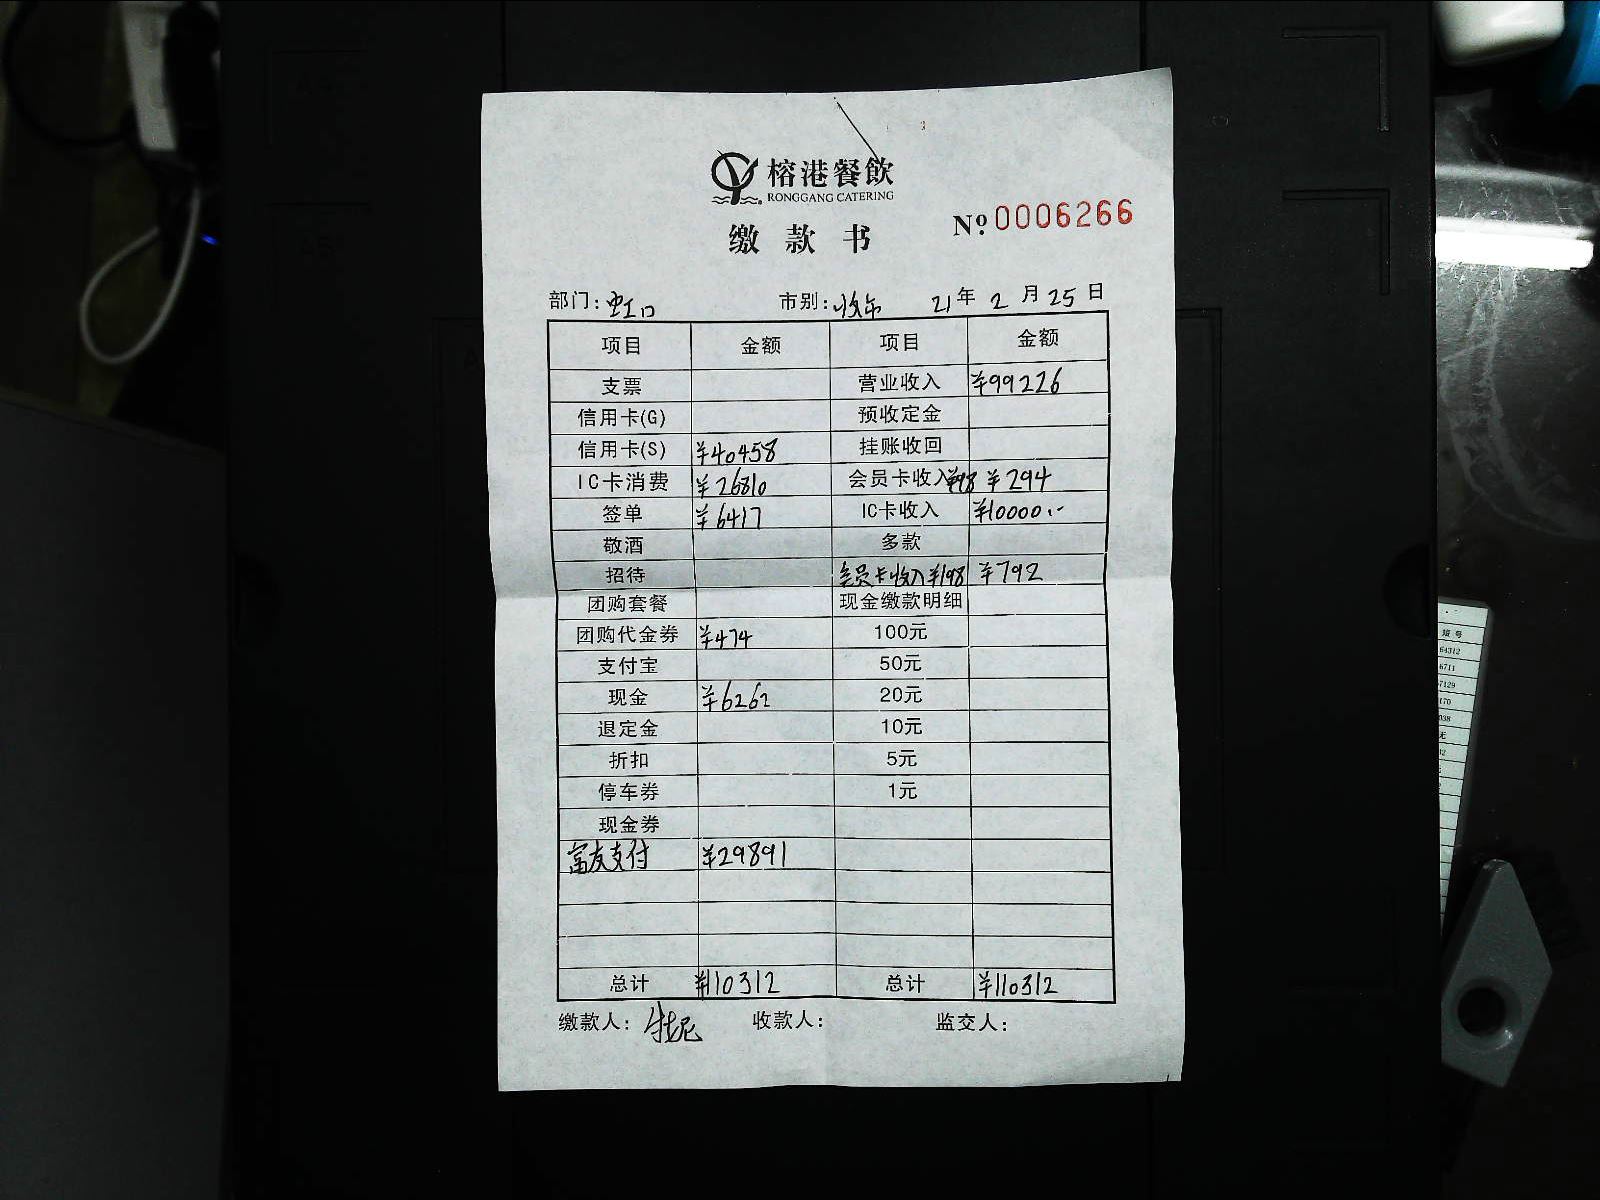 榕港餐飲
RONGGANG CATERING
缴款书
№ 0006266
部门: 虹口 市别: 21年 2月25日
项目 金额 项目 金额
支票 营业收入 ¥99226
信用卡(G) 预收定金
信用卡(S) ¥40458 挂账收回
IC卡消费 ¥26810 会员卡收入¥98 ¥294
签单 ¥6417 IC卡收入 ¥10000.-
敬酒 多款
招待 会员卡收入¥198 ¥792
团购套餐 现金缴款明细
团购代金券 ¥474 100元
支付宝 50元
现金 ¥6262 20元
退定金 10元
折扣 5元
停车券 1元
现金券
富友支付 ¥29891
总计 ¥110312 总计 ¥110312
缴款人: 收款人: 监交人: